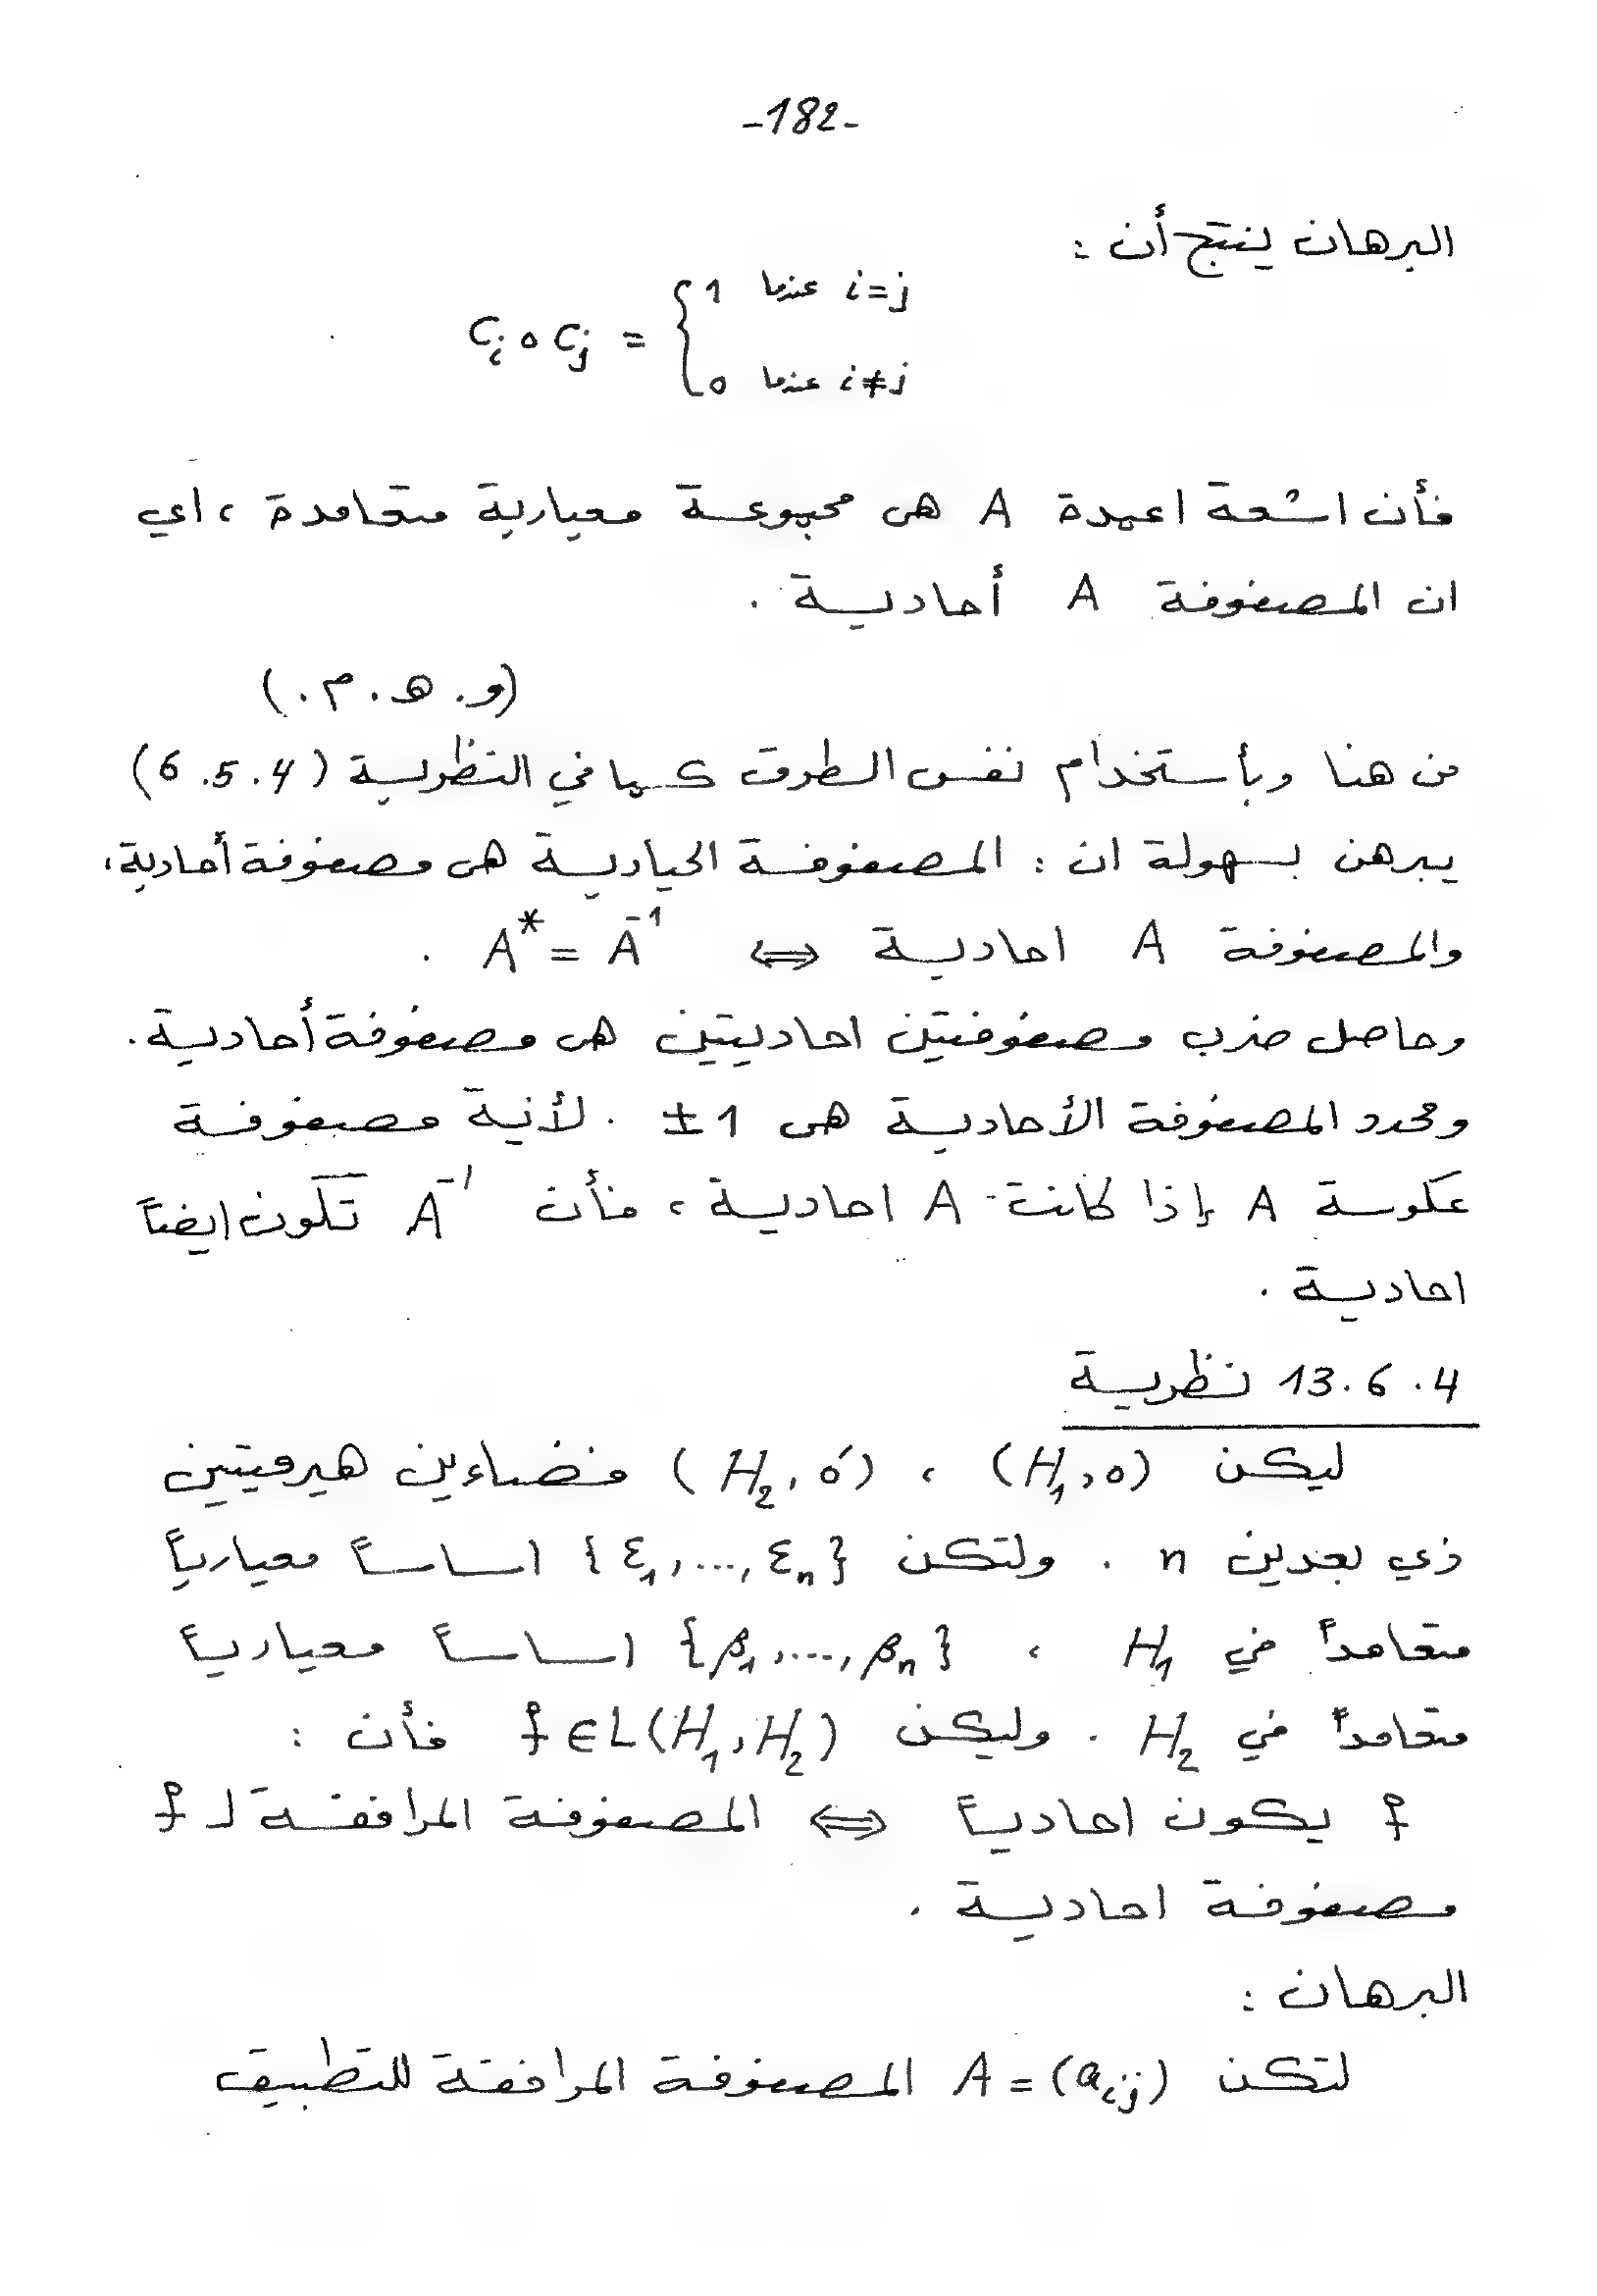 -182-
البرهان ينتج أن :
1 عندما i=j
C_i o C_j = {
0 عندما i≠j
فأن اشعة اعمدة A هى مجموعة معيارية متعامدة ، اي
ان المصفوفة A أحادية .
(و . ه . م .)
من هنا وبأستخدام نفس الطرق كما في النظرية (6.5.4)
يبرهن بسهولة ان : المصفوفة الحيادية هى مصفوفة أحادية ،
والمصفوفة A احادية ⇔ A* = A⁻¹ .
وحاصل ضرب مصفوفتين احاديتين هى مصفوفة أحادية .
ومحدد المصفوفة الأحادية هى ±1 . لأنية مصفوفة
عكوسة A إذا كانت A احادية ، فأن A⁻¹ تكون ايضاً
احادية .
13.6.4 نظرية
ليكن (H₁,o) ، (H₂,o′) فضاءين هيرميتين
ذي بعدين n . ولتكن {ε₁,...,εₙ} اساساً معيارياً
متعامداً في H₁ ، {β₁,...,βₙ} اساساً معيارياً
متعامداً في H₂ . وليكن f ∈ L(H₁,H₂) فأن :
f يكون احادياً ⇔ المصفوفة المرافقة لـ f
مصفوفة احادية .
البرهان :
لتكن A = (a_ij) المصفوفة المرافقة للتطبيق